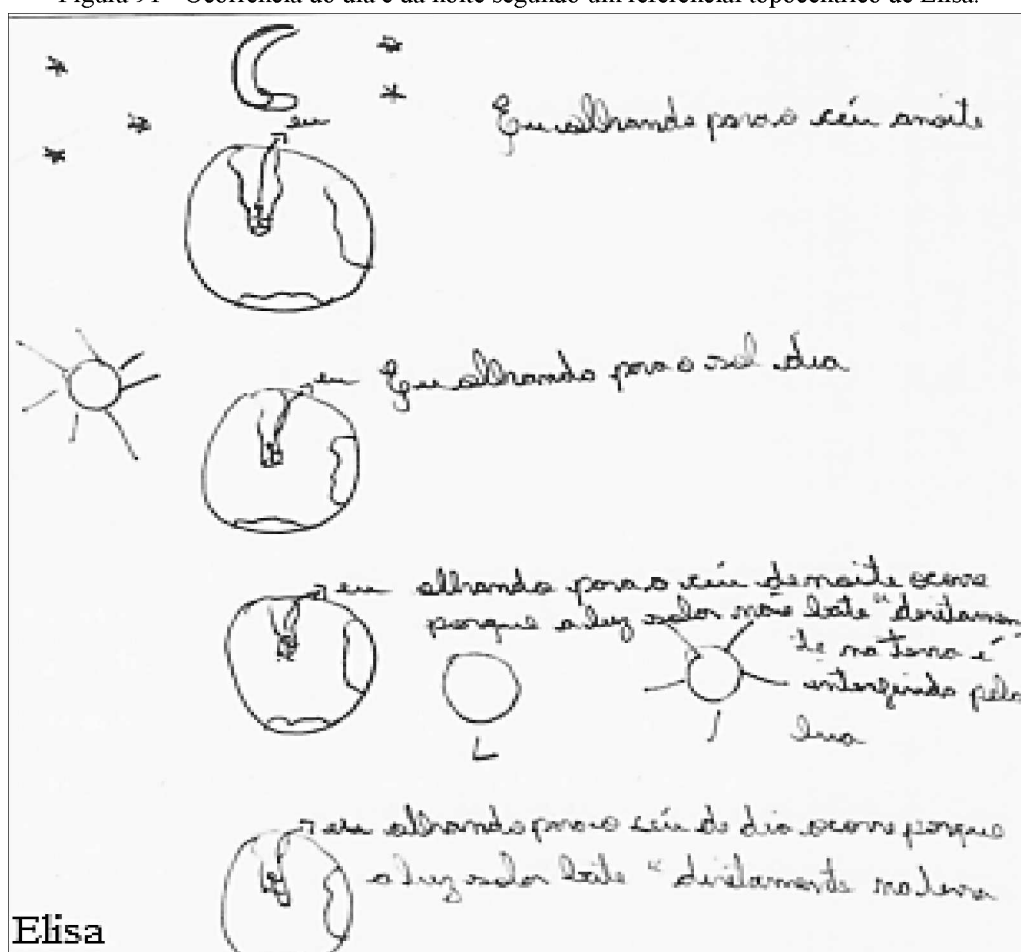 Figura 91 - Ocorrência do dia e da noite segundo um referencial topocêntrico de Elisa.
eu
Eu olhando para o céu anoite
eu
Eu olhando para o sol dia
eu olhando para o céu de noite ocorre
porque a luz solar não bate "diretamen
te na terra é
pela
lua
L
eu olhando para o céu de dia ocorre porque
a luz solar bate "diretamente na terra
Elisa